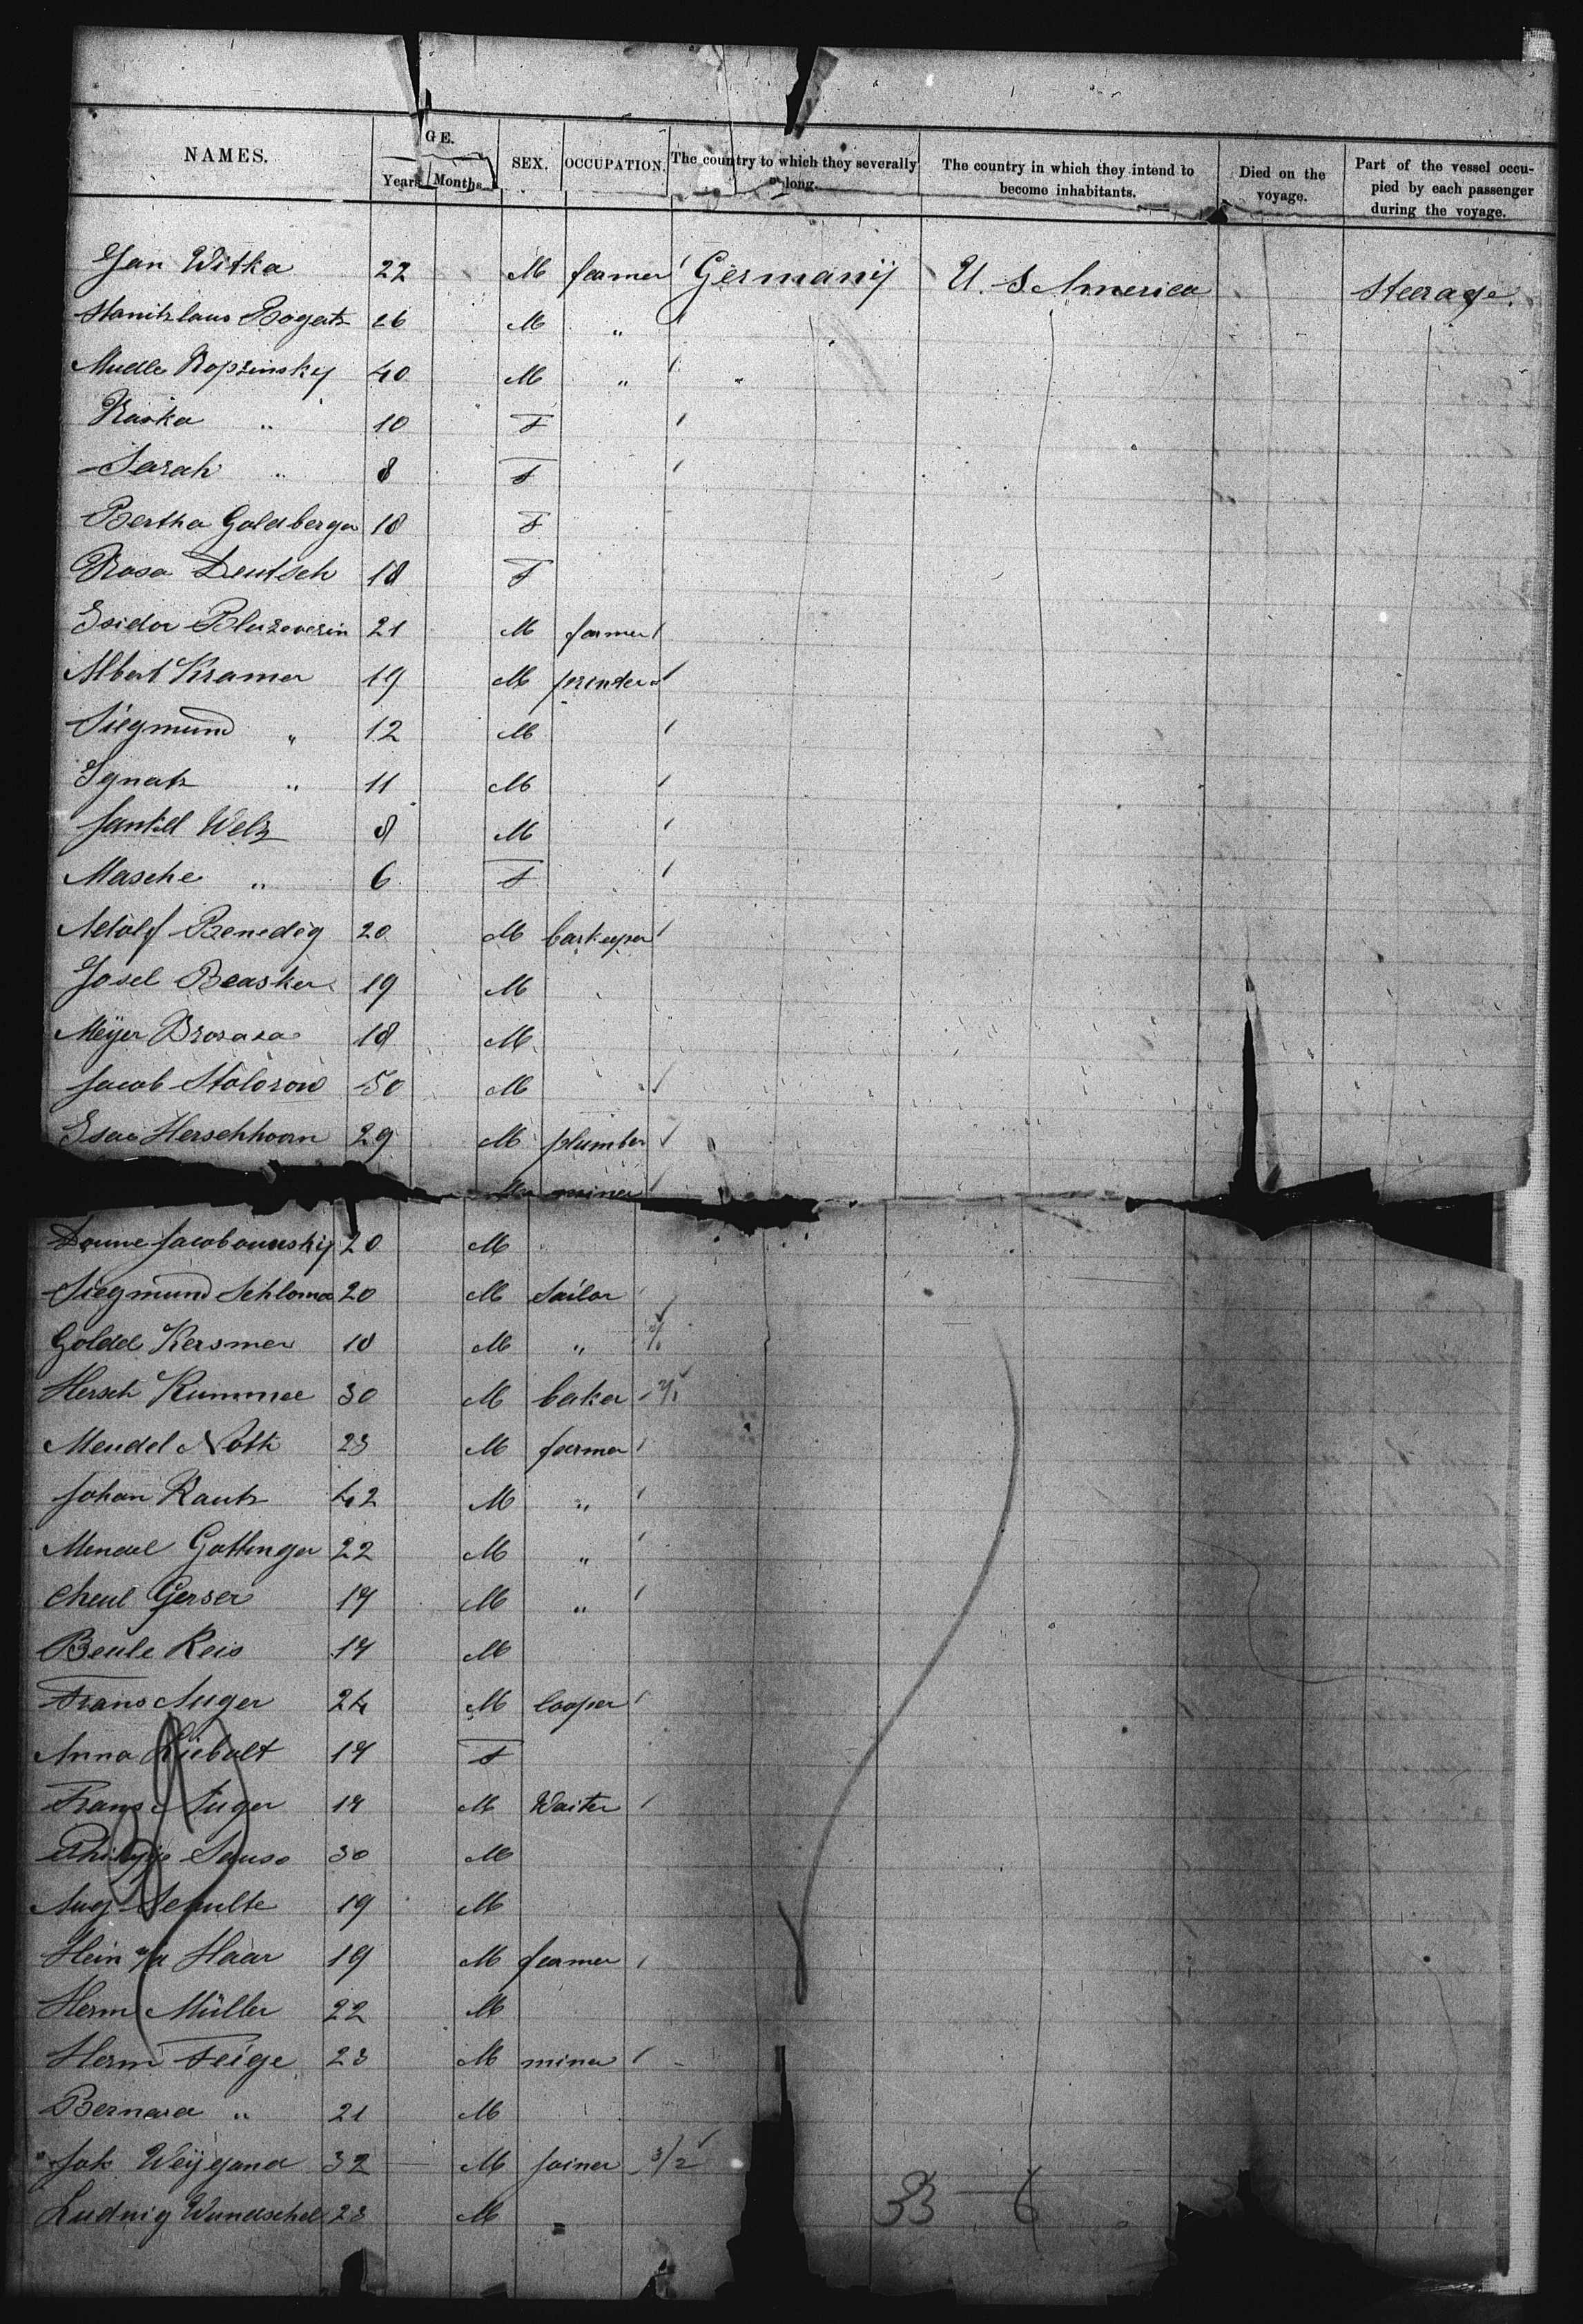 NAMES. GE. Years Months SEX. OCCUPATION. The country to which they severally long. The country in which they intend to become inhabitants. Died on the voyage. Part of the vessel occupied by each passenger during the voyage.
Jan Witka 22 M farmer Germany U. S. America Steerage.
Stanitzlaus Bogatz 26 M "
Mudle Ropzinsky 40 M " "
Raska " 10 F
Sarah " 8 F
Bertha Goldberger 18 F
Rosa Deutsch 18 F
Isidor 21 M farmer
Albert Kramer 19 M printer
Siegmund " 12 M
Ignatz " 11 M
Welz 8 M
Masche " 6 F
Adolf Benedig 20 M barkeeper
Josel Beasker 19 M
Meÿer 18 M
Jacob Stolorow 50 M
Isac Herschhorn 29 M plumber
M miner
20 M
Siegmund Schloma 20 M Sailor
Goldel Kersmer 18 M "
Hersch Kummel 30 M baker
Mendel Noth 23 M farmer
Johan Rautz 42 M "
Mendel Gottinger 22 M "
Gerser 17 M "
Beule Reis 17 M
Frans Auger 24 M Cooper
Anna Liebolt 17 F
Frans Auger 17 M Waiter
Philipp 30 M
Aug Schulte 19 M
Hein v/d Haar 19 M farmer
Herm Müller 22 M
Herm Feige 23 M miner
Bernard " 21 M
Joh Weÿgand 32 M joiner 3/2
Ludwig Wundschel 23 M "
33 6